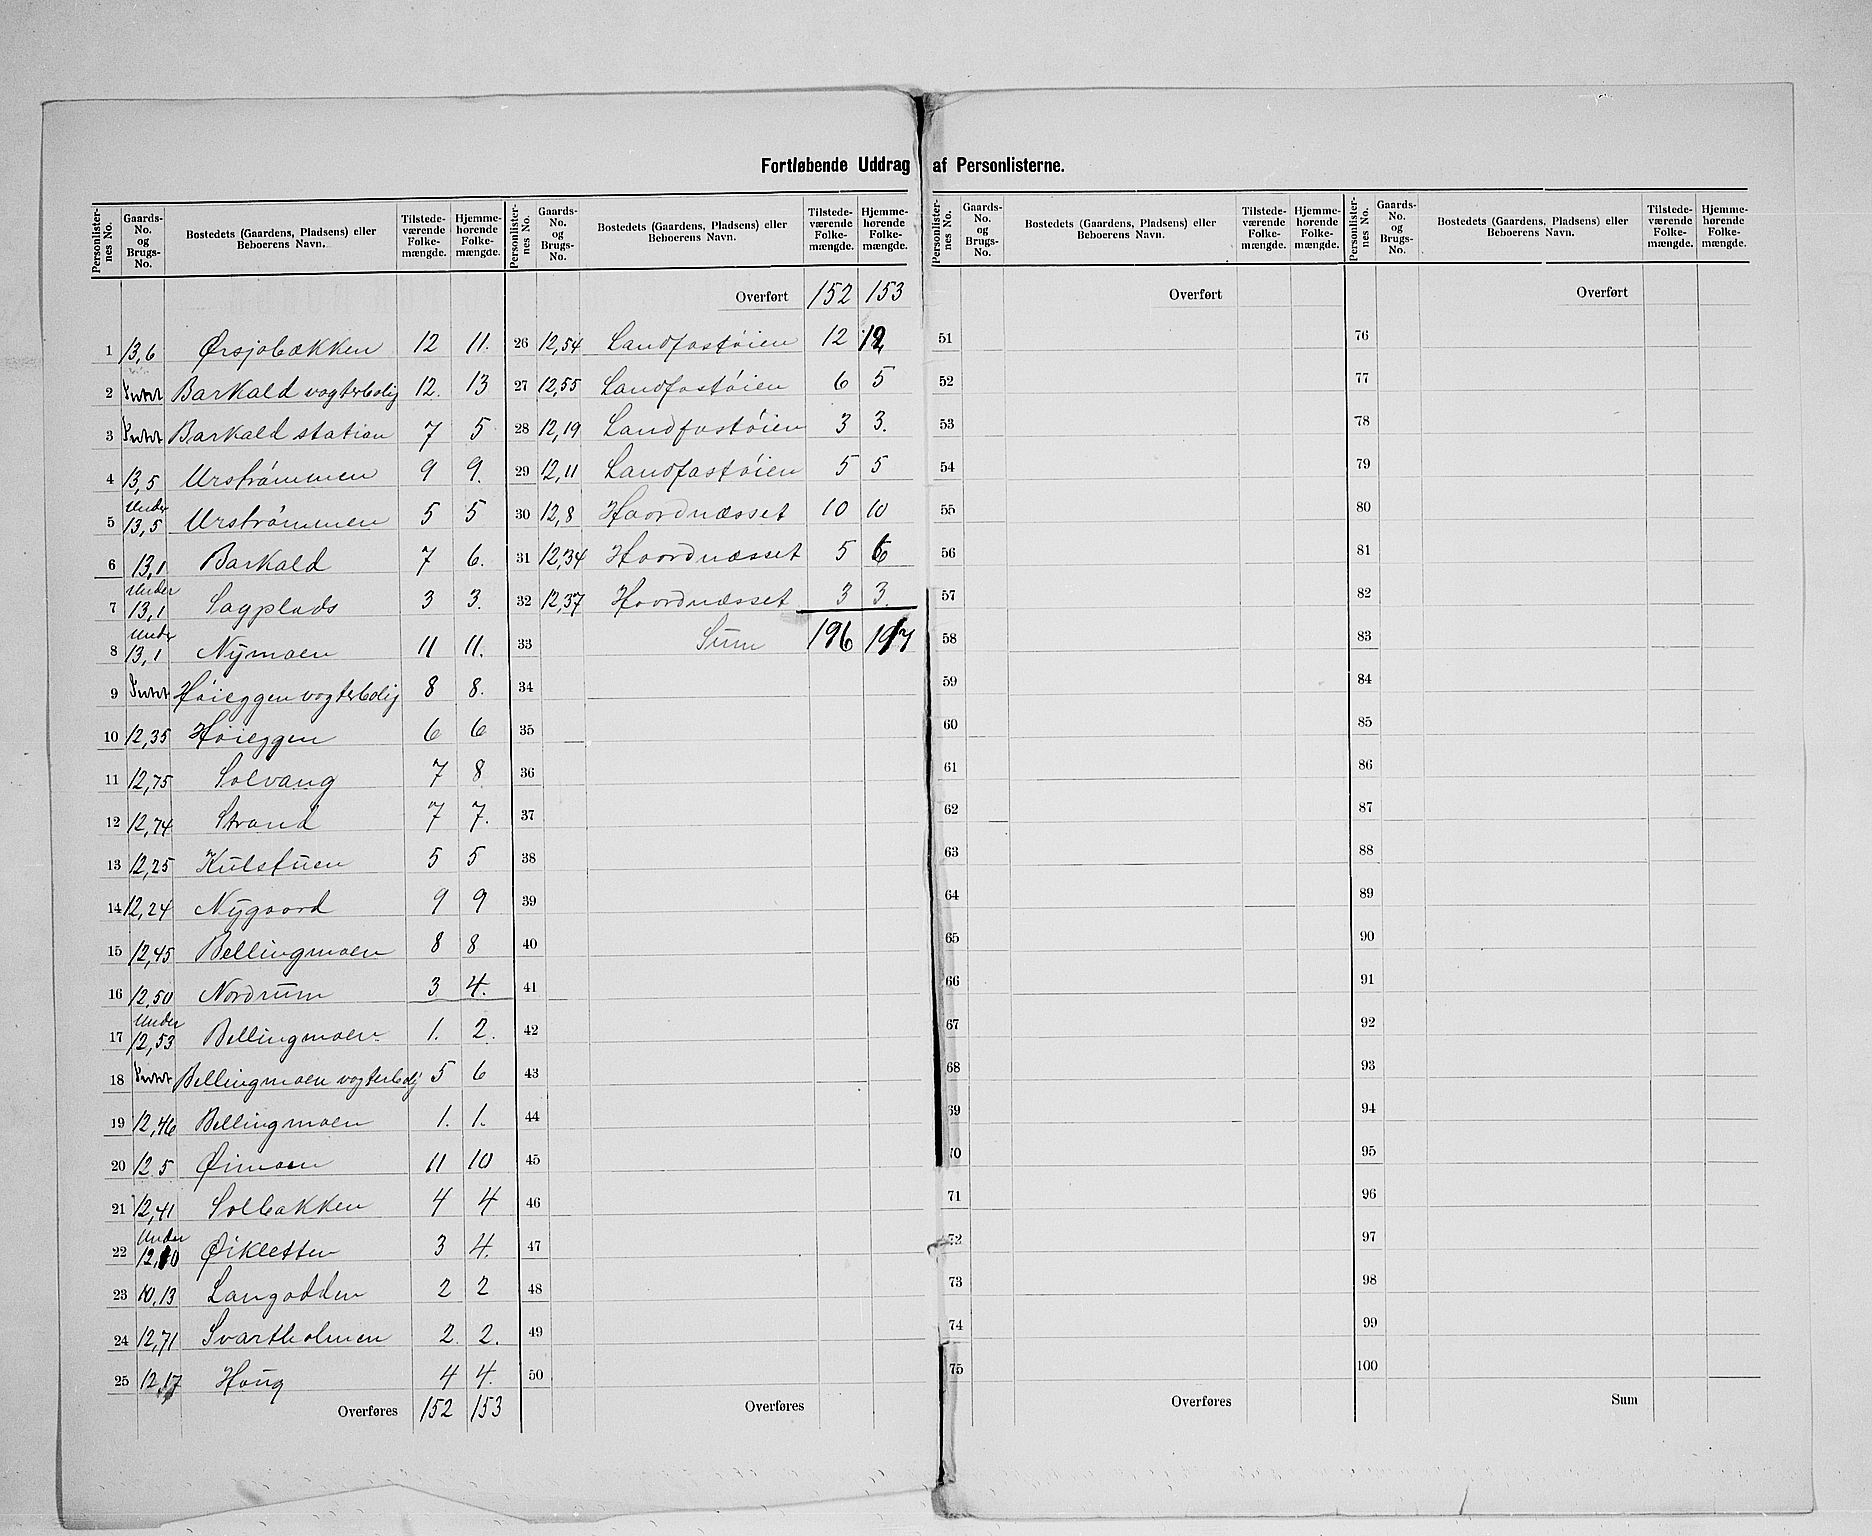 Fortløbende Uddrag af Personlisterne.
Personlister-nes No. | Gaards-No. og Brugs-No. | Bostedets (Gaardens, Pladsens) eller Beboerens Navn. | Tilstede-værende Folke-mængde. | Hjemme-hørende Folke-mængde.
1 | 13,6 | Ørsjobækken | 12 | 11.
2 | Intet | Barkald vogterbolig | 12. | 13
3 | Intet | Barkald station | 7 | 5
4 | 13,5 | Urstrømmen | 9 | 9.
5 | Under 13,5 | Urstrømmen | 5 | 5
6 | 13,1 | Barkald | 7 | 6.
7 | Under 13,1 | Sagplads | 3 | 3.
8 | Under 13,1 | Nymoen | 11 | 11.
9 | Intet | Høieggen vogterbolig | 8 | 8.
10 | 12,35 | Høieggen | 6 | 6
11 | 12,75 | Solvang | 7 | 8
12 | 12,74 | Strand | 7 | 7.
13 | 12,25 | Kulstuen | 5 | 5
14 | 12,24 | Nygaard | 9 | 9
15 | 12,45 | Bellingmoen | 8 | 8
16 | 12,50 | Nordrum | 3 | 4.
17 | Under 12,53 | Bellingmoen | 1. | 2.
18 | Intet | Bellingmoen vogterbolig | 5 | 6
19 | 12,46 | Bellingmoen | 1. | 1.
20 | 12,5 | Øimoen | 11 | 10
21 | 12,41 | Solbakken | 4 | 4
22 | Under 12,10 | Øikletten | 3 | 4.
23 | 10,13 | Langodden | 2 | 2
24 | 12,71 | Svartholmen | 2. | 2.
25 | 12,17 | Houg | 4 | 4.
Overføres | 152 | 153
Personlister-nes No. | Gaards-No. og Brugs-No. | Bostedets (Gaardens, Pladsens) eller Beboerens Navn. | Tilstede-værende Folke-mængde. | Hjemme-hørende Folke-mængde.
Overført | 152 | 153
26 | 12,54 | Landfastøien | 12 | 12
27 | 12,55 | Landfastøien | 6 | 5
28 | 12,19 | Landfastøien | 3 | 3.
29 | 12,11 | Landfastøien | 5 | 5
30 | 12,8 | Haardnæsset | 10 | 10
31 | 12,34 | Haardnæsset | 5 | 6
32 | 12,37 | Haardnæsset | 3 | 3.
33 | Sum | 196 | 197
34
35
36
37
38
39
40
41
42
43
44
45
46
47
48
49
50
Overføres
Personlister-nes No. | Gaards-No. og Brugs-No. | Bostedets (Gaardens, Pladsens) eller Beboerens Navn. | Tilstede-værende Folke-mængde. | Hjemme-hørende Folke-mængde.
Overført
51
52
53
54
55
56
57
58
59
60
61
62
63
64
65
66
67
68
69
70
71
72
73
74
75
Overføres
Personlister-nes No. | Gaards-No. og Brugs-No. | Bostedets (Gaardens, Pladsens) eller Beboerens Navn. | Tilstede-værende Folke-mængde. | Hjemme-hørende Folke-mængde.
Overført
76
77
78
79
80
81
82
83
84
85
86
87
88
89
90
91
92
93
94
95
96
97
98
99
100
Sum